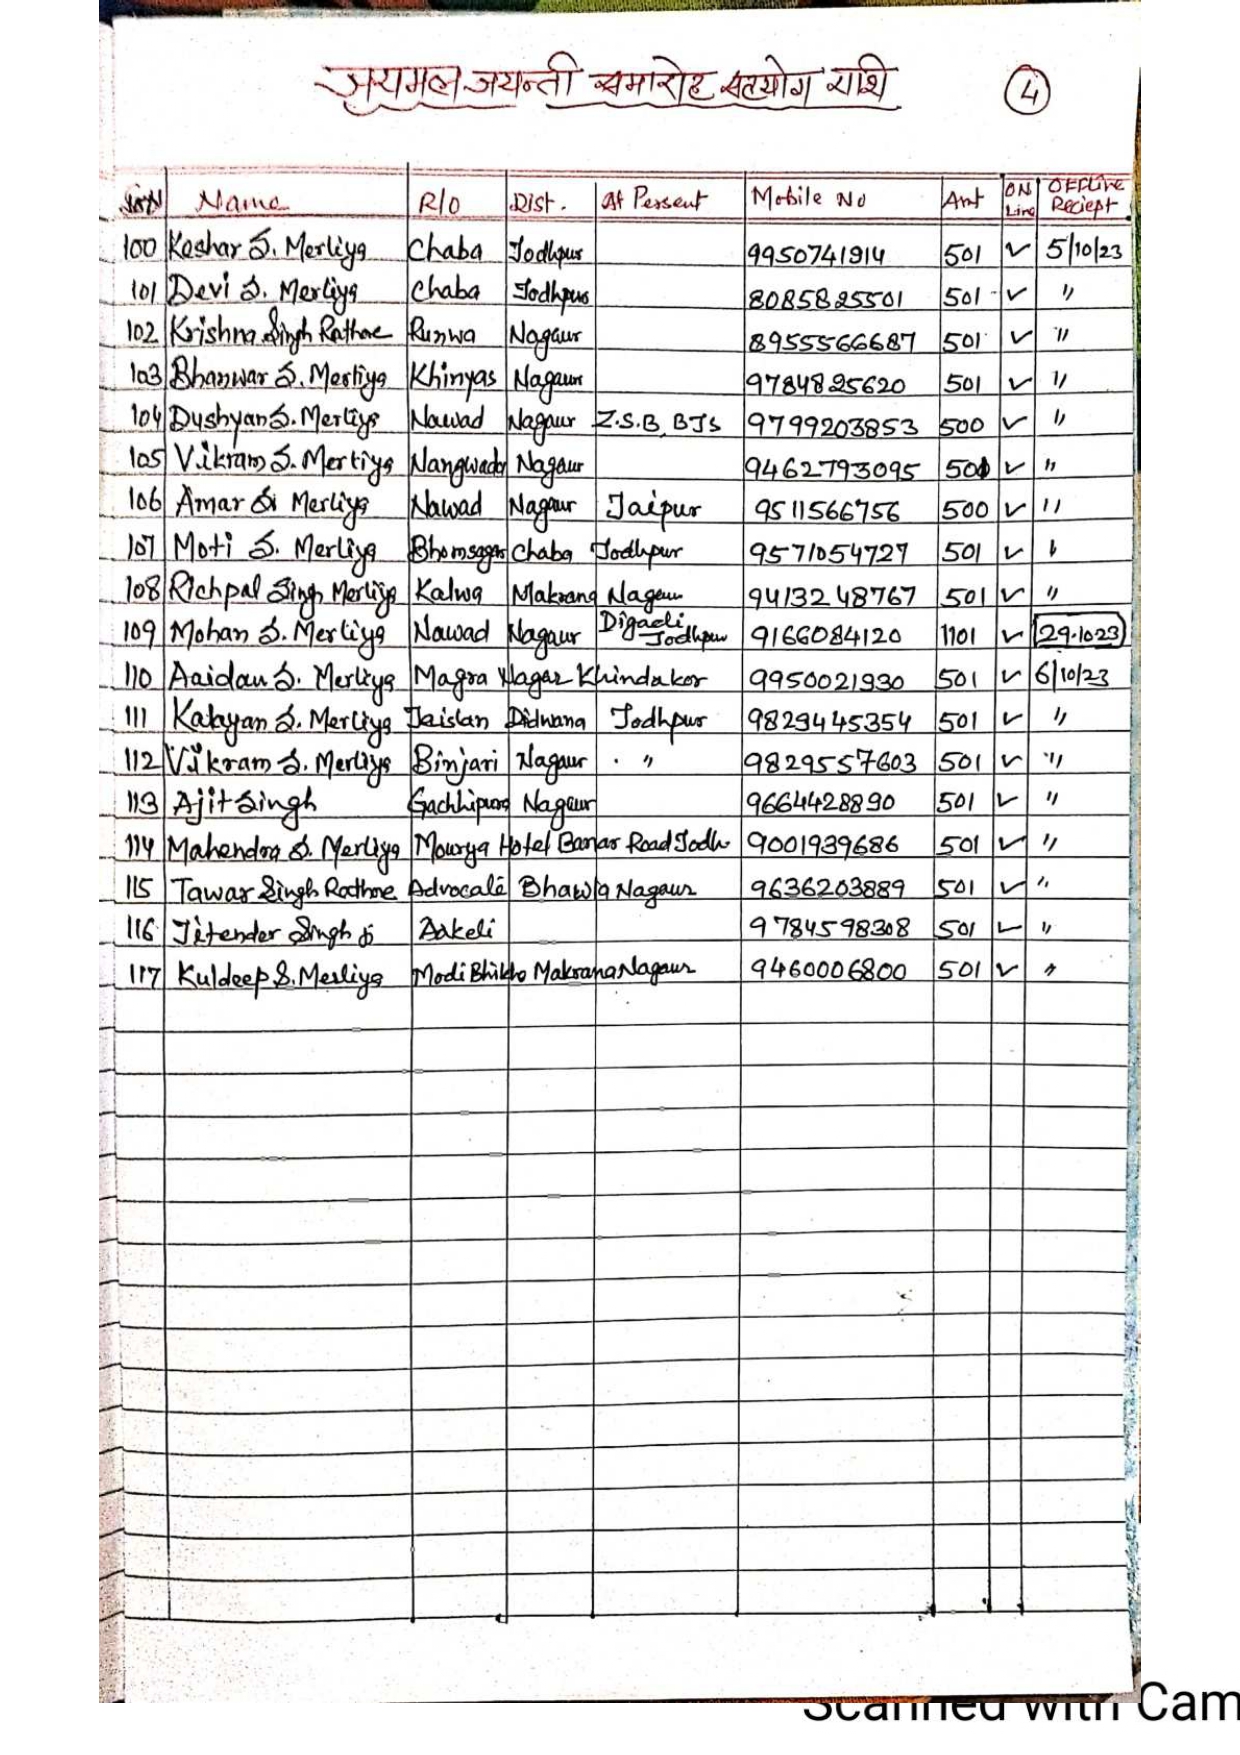 जयमल जयन्ती समारोह सहयोग राशि 4
Name R/O Dist. At Persent Mobile No Amt ON Line OFFLine Reciept
100 Keshar S. Mertiya Chaba Jodhpur 9950741914 501 ✓ 5/10/23
101 Devi S. Mertiya Chaba Jodhpur 8085825501 501 ✓ "
102 Krishna Singh Rathore Runwa Nagaur 8955566687 501 ✓ "
103 Bhanwar S. Mertiya Khinyas Nagaur 9784825620 501 ✓ "
104 Dushyan S. Mertiya Nawad Nagaur Z.S.B, BJS 9799203853 500 ✓ "
105 Vikram S. Mertiya Nangwada Nagaur 9462793095 501 ✓ "
106 Amar S Mertiya Nawad Nagaur Jaipur 9511566756 500 ✓ "
107 Moti S. Mertiya Bhomsagar Chaba Jodhpur 9571054727 501 ✓ "
108 Richpal Singh Mertiya Kalwa Makrana Nagaur 9413248767 501 ✓ "
109 Mohan S. Mertiya Nawad Nagaur Digadi Jodhpur 9166084120 1101 ✓ 29.10.23
110 Aaidan S. Mertiya Magra Nagar Khindakor 9950021930 501 ✓ 6/10/23
111 Kalayan S. Mertiya Jaislan Didwana Jodhpur 9829445354 501 ✓ "
112 Vikram S. Mertiya Binjari Nagaur " 9829557603 501 ✓ "
113 Ajit Singh Gachhipura Nagaur 9664428890 501 ✓ "
114 Mahendra S. Mertiya Mourya Hotel Banar Road Jodh 9001939686 501 ✓ "
115 Tawar Singh Rathore Advocate Bhawla Nagaur 9636203889 501 ✓ "
116 Jitender Singh ji Aakeli 9784598308 501 ✓ "
117 Kuldeep S. Mertiya Modi Bhikho Makrana Nagaur 9460006800 501 ✓ "
Scanned with Cam